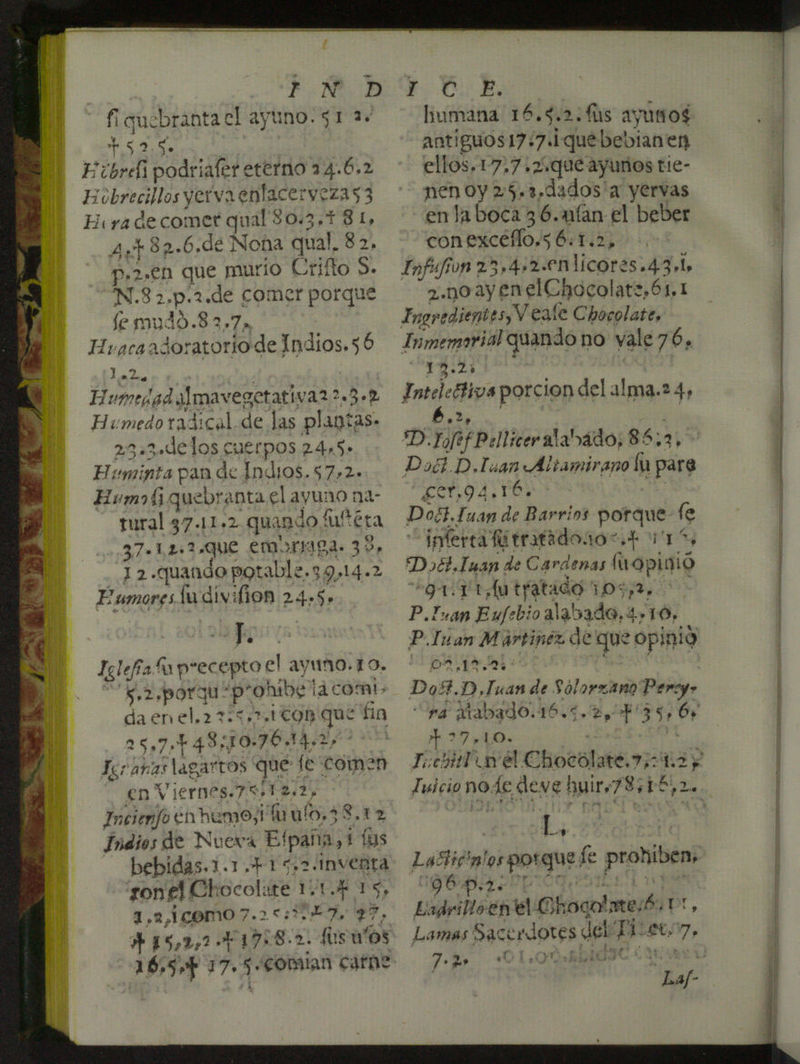 INDICE.
si quebranta el ayuno. 51 2.
† 52.5.
Hibresi podria ser eterno 24.6.2
Hobrecillos yerva en la cerveza 53
Hora de comer qual 80.3.† 81,
4.† 82.6. de Nona qual. 82,
p.2. en que murio Cristo S.
N. 82. p. 2. de comer porque
se mudò. 83.7.
Huaca adoratorio de Indios. 56
1.2.
Humedad alma vegetativa 23.3.2
Humedo radical de las plantas.
23.3. de los cuerpos 24.5.
Huminta pan de Indios. 57.2.
Humo si quebranta el ayuno na-
tural 37.11.2 quando sustēta
37.12.2. que embriaga. 38.
12. quando potable. 39.14.2
Humores su division 24.5.
I.
Iglesia su precepto el ayuno. 10.
5.2. porque prohibe la comi-
da en el. 23.5.2. i con que fin
25.7.† 48.10.76.14.2.
Igranas lagartos que se comen
en Viernes. 75.12.2.
Incienso en humo, i su uso. 38.12
Indios de Nueva España, i sus
bebidas. 1.1.† 15.2. inventa
ron el Chocolate 1.1.† 15,
1.2, i como 7.2
† 15,2,2.† 17.8.2. sus usos
16.5.† 17.5. comian carne
humana 16.5.2. sus ayunos
antiguos 17.7. i que bebian en
ellos. 17.7.2. que ayunos tie-
nen oy 25.2. dados a yervas
en la boca 36. usan el beber
con excesso. 56.1.2.
Infusion 23.4.2. en licores. 43.1,
2. no ay en el Chocolate, 61.1
Ingredientes, Vease Chocolate.
Inmemorial quando no vale 76.
13.2.
Intelectiva porcion del alma. 24,
6.2,
D. Iosef Pellicer alabado, 86.2,
Doct. D. Iuan Altamirano su pare
cer, 94.16.
Doct. Iuan de Barrios porque se
inserta su tratado.
Doct. Iuan de Cardenas su opiniō
91.11, su tratado 105,2,
P. Iuan Eusebio alabado, 4.10,
P. Iuan Martinez de que opiniō
Doct. D. Iuan de Solorzano Perey-
ra alabado. 16.5.2, † 35, 6,
† 77.10.
en el Chocolate. 7,
Iuicio no se deve huir. 78.16,2.
L.
Lacticinios porque se prohiben.
96 p.2.
Ladrillo en el Chocolate. 6.11,
Lamas Sacerdotes del Tibet, 7,
7.2.
Las-